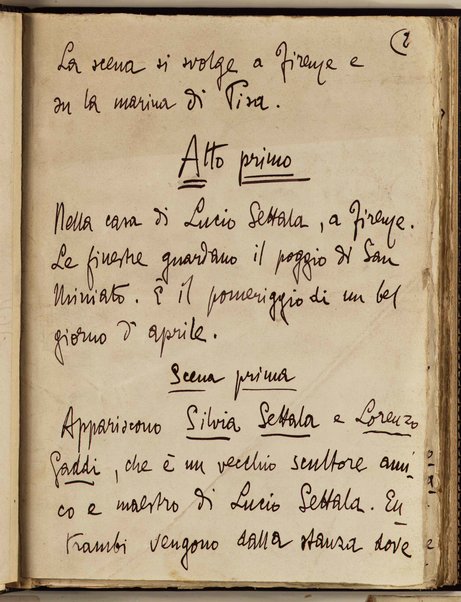 2
La scena si svolge a Firenze e
su la marina di Pisa.
Atto primo
Nella casa di Lucio Settala, a Firenze.
Le finestre guardano il poggio di San
Miniato. È il pomeriggio di un bel
giorno d'aprile.
Scena prima
Appariscono Silvia Settala e Lorenzo
Gaddi, che è un vecchio scultore ami-
co e maestro di Lucio Settala. En-
trambi vengono dalla stanza dove